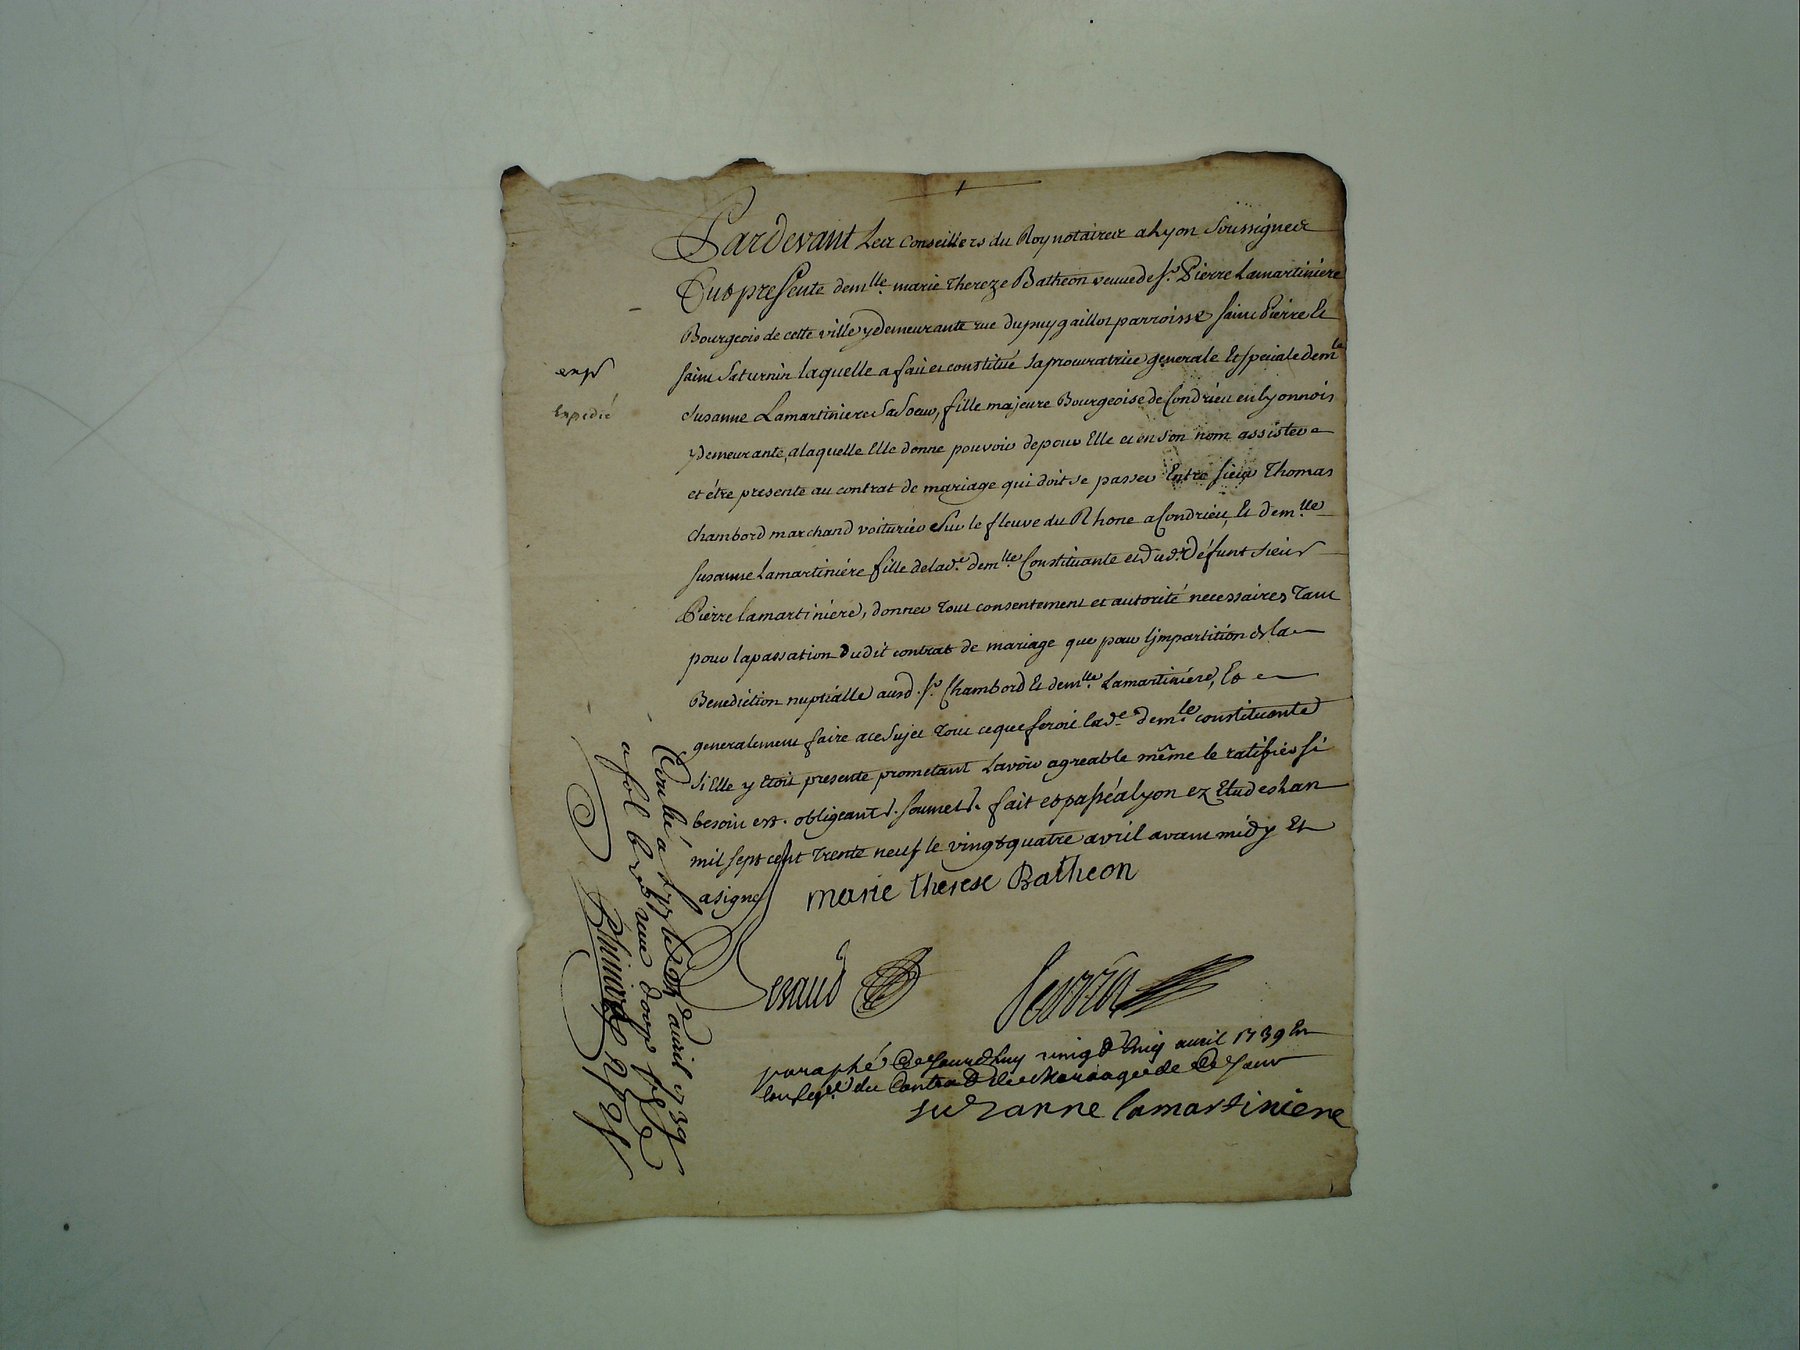 Pardevant Les Conseillers du Roy notaires a Lyon soussignes
Fut presente demlle. marie Thereze Batheon veuve de sr. Pierre Lamartiniere
Bourgeois de cette ville y demeurante rue du puy gaillot parroisse saint Pierre Et
saint Saturnin laquelle a fait et constitué sa procuratrice generale Et speciale demlle
Susanne Lamartiniere Sa Soeur, fille majeure Bourgeoise de Condrieu en lyonnois
expedié
y demeurante, a laquelle Elle donne pouvoir de pour Elle et en son nom assister
et étre presente au contrat de mariage qui doit se passer Entre sieur Thomas
Chambord marchand voiturier Sur le fleuve du Rhone a Condrieu, Et demlle
Susanne Lamartiniére fille de lade. demlle Constituante et dud. défunt sieur
Pierre lamartiniere, donner Tout consentement et autorité necessaires Tant
pour la passation dudit contrat de mariage que pour L'impartition de la
Benediction nuptialle ausd. sr. Chambord Et demlle Lamartiniére, Et
generalement faire a ce Sujet Tout ce que feroit lade demlle constituante
si Elle y Etoit presente prometant Lavoir agreable même le ratifier si
besoin est. obligeant &. soumet &. fait et passé a lyon ez Etudes Lan
mil sept cent Trente neuf le vingt quatre avril avant midy Et
a signé
marie therese Batheon
Renaud Perrin
paraphé Ce Jourdhuy vingt avril 1739 En
du Contract de Mariage de Ce Jour
suzanne lamartiniere
Conllé a Lyon le avril 1739
a fol